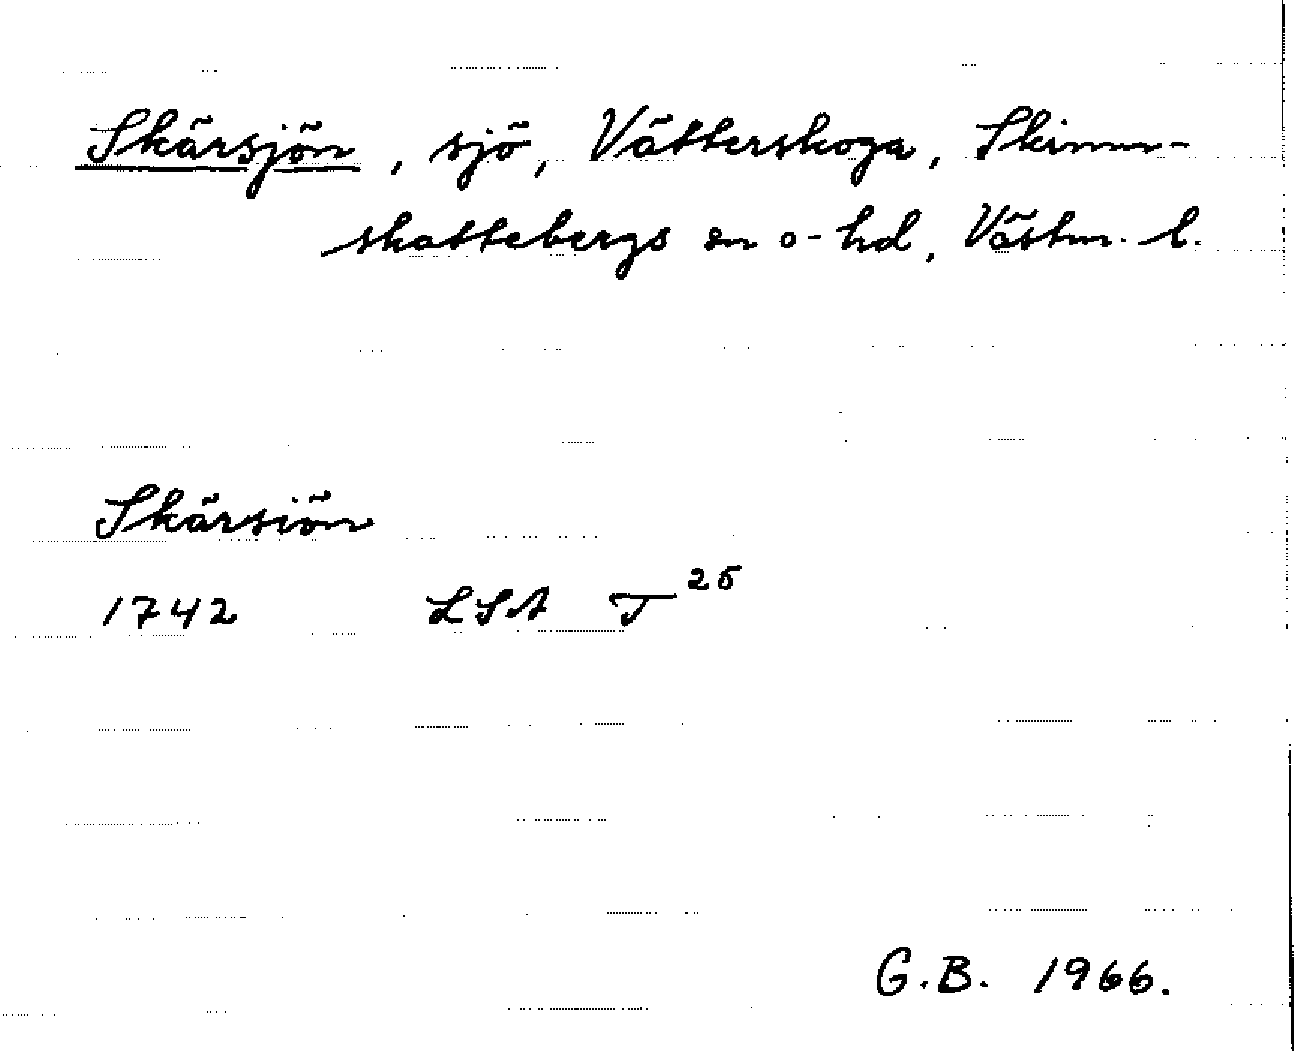 Skärsjön, sjö, Vätterskoga, Skinn-
skattebergs sn o- hd, Västm. l.
Skärsiön
1742 LSA T 26
G.B. 1966.